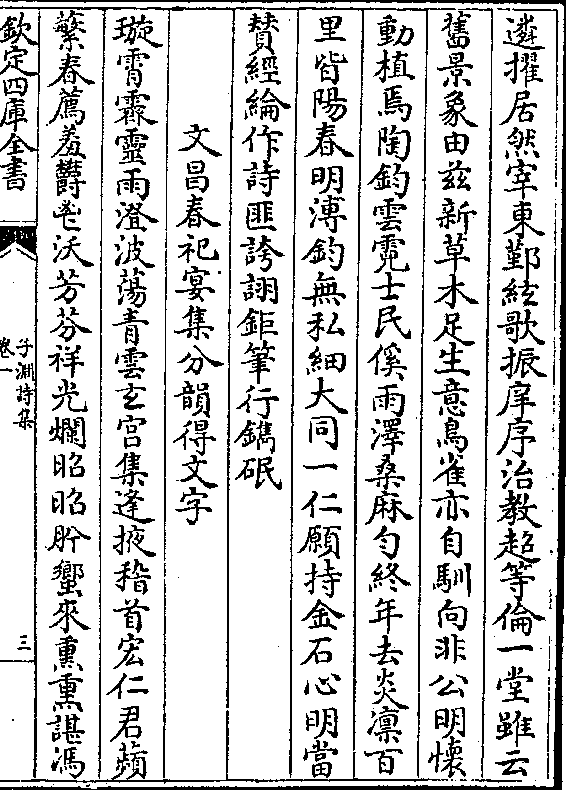 遴擢居然宰東鄞絃歌振庠序治教超等倫一堂雖云
舊景象由兹新草木足生意鳥雀亦自馴向非公明懐
動植焉陶鈞雲霓士民傒雨澤桑麻勻終年去炎凛百
里皆陽春明溥鈞無私細大同一仁願持金石心明當
賛經綸作詩匪誇詡鉅筆行鐫珉
文昌春祀宴集分韻得文字
璇霄霖靈雨澄波蕩青雲玄宫集逢掖稽首宏仁君蘋
蘩春薦羞鬱鬯沃芳芬祥光爛昭昭肹蠁來熏熏諶馮
欽定四庫全書
子淵詩集
卷一
三